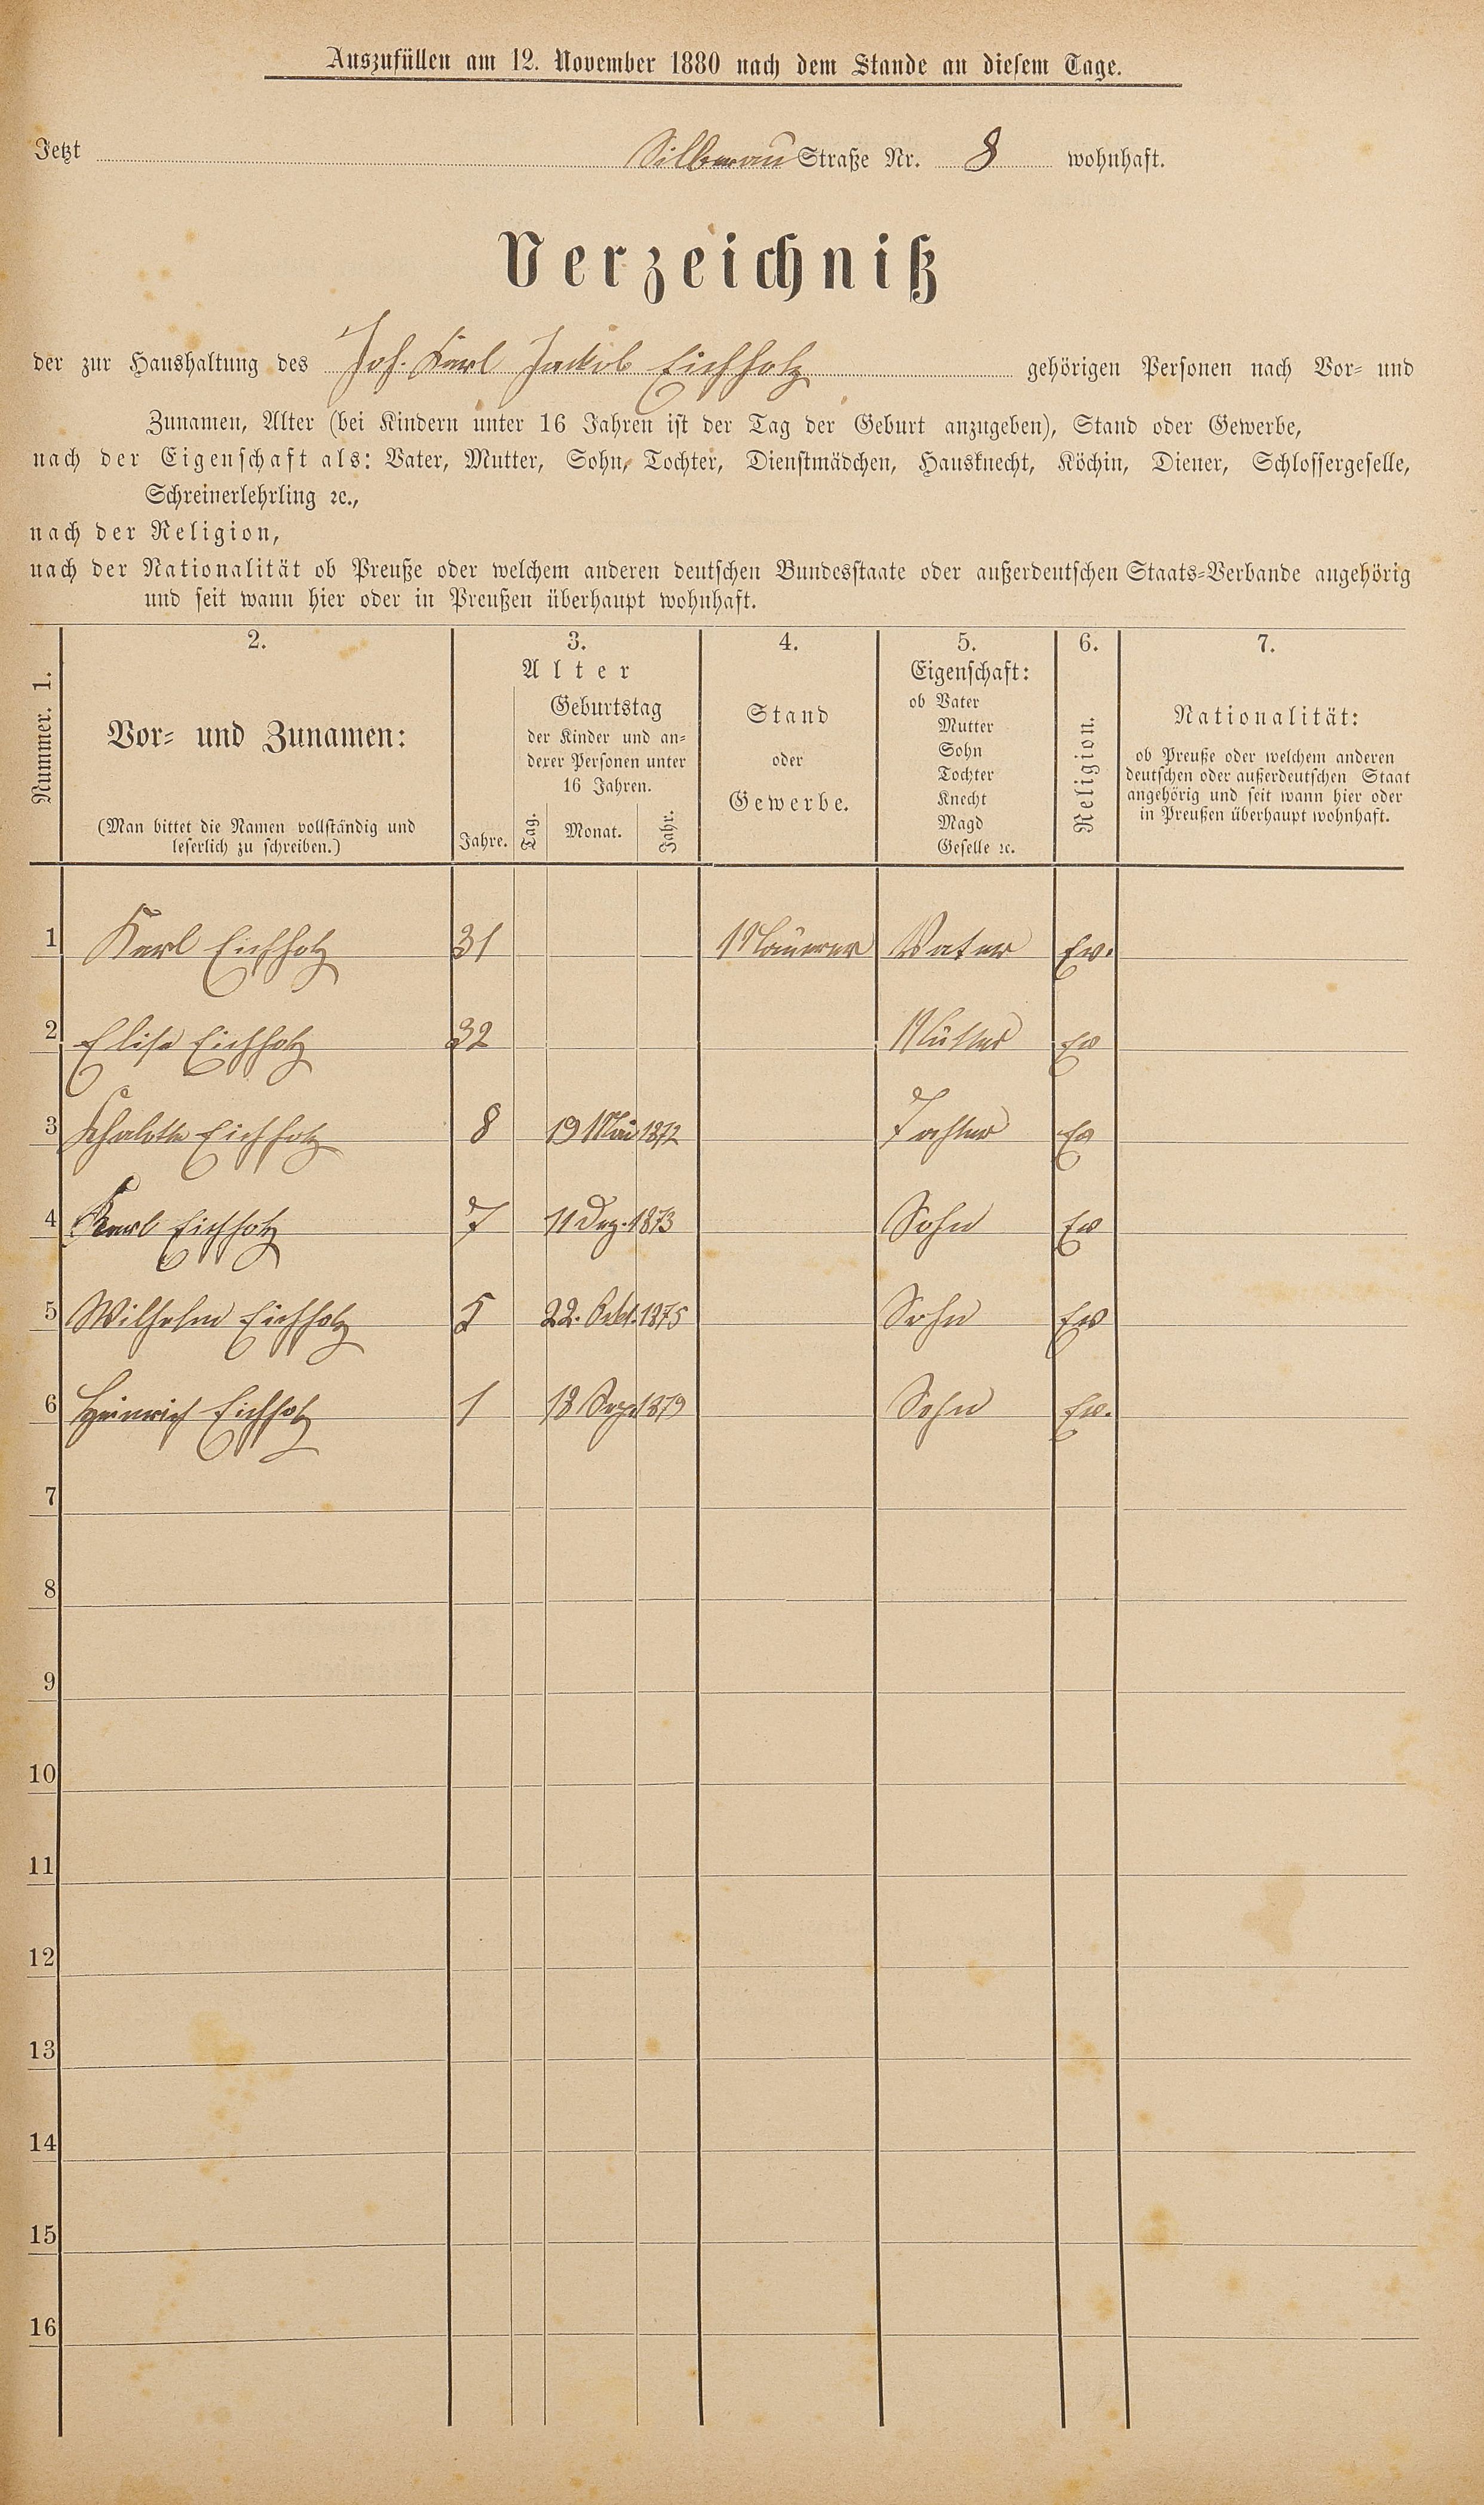 Auszufüllen am 12. November 1880 nach dem Stande an diesem Tage.
Jetzt Straße Nr. 8 wohnhaft.
Verzeichniß
der zur Haushaltung des Joh. Karl Jakob Eichholz gehörigen Personen nach Vor- und
Zunamen, Alter (bei Kindern unter 16 Jahren ist der Tag der Geburt anzugeben), Stand oder Gewerbe,
nach der Eigenschaft als: Vater, Mutter, Sohn, Tochter, Dienstmädchen, Hausknecht, Köchin, Diener, Schlossergeselle,
Schreinerlehrling ꝛc.,
nach der Religion,
nach der Nationalität ob Preuße oder welchem anderen deutschen Bundesstaate oder außerdeutschen Staats-Verbande angehörig
und seit wann hier oder in Preußen überhaupt wohnhaft.
Nummer. 1.
2.
Vor- und Zunamen:
(Man bittet die Namen vollständig und
leserlich zu schreiben.)
3.
Alter
Jahre.
Geburtstag
der Kinder und an-
derer Personen unter
16 Jahren.
Tag. Monat. Jahr.
4.
Stand
oder
Gewerbe.
5.
Eigenschaft:
ob Vater
Mutter
Sohn
Tochter
Knecht
Magd
Geselle ꝛc.
6.
Religion.
7.
Nationalität:
ob Preuße oder welchem anderen
deutschen oder außerdeutschen Staat
angehörig und seit wann hier oder
in Preußen überhaupt wohnhaft.
1 Karl Eichholz 31 Maurer Vater Ev.
2 Elise Eichholz 32 Mutter Ev
3 Eichholz 8 19 Mai 1872 Tochter Ev
4 Karl Eichholz 7 11 Dez. 1873 Sohn Ev
5 Wilhelm Eichholz 5 22. 1875 Sohn Ev
6 Heinrich Eichholz 1 18 Sept 1879 Sohn Ev.
7
8
9
10
11
12
13
14
15
16